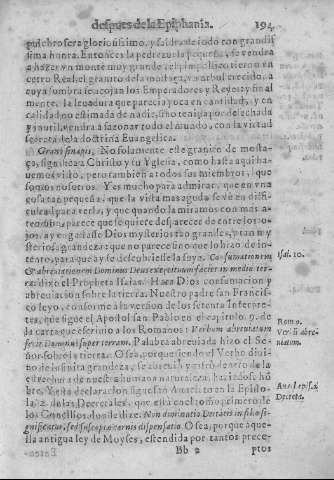 despues de la Epiphania. 194
pulchro sera gloriosissimo, y saldra de todo con grandis
sima honra. Entonces la pedrezuela pequeña, se vendra
a hazer vn monte muy grande
cerro Real: el granito de la mostaza, vn arbol crecido, a
cuya sombra se acojan los Emperadores y Reyes: y final
mente, la leuadura que parecia poca en cantidad, y en
calidad no estimada de nadie, sino tenida por desechada
y inutil, vendra a sazonar todo el mundo, con la virtud
secreta de la doctrina Euangelica.
Grano sinapis, No solamente este granito de mosta-
za, significa a Christo y su Yglesia, como hasta aqui ha-
uemos visto, pero tambien a todos sus miembros, que
somos nosotros. Y es mucho para admirar, que en vna
cosa tan pequeña, que la vista mas aguda se ve en difi-
cultad para verla, y que quando la miramos con mas a-
tencion, parece que se quiere desparecer de entre los o-
jos, aya encerrado Dios mysterios tan grandes, y tan my
steriosas grandezas: que no parece sino que lo hizo de in-
tento, para que ay se descubriesse la suya. Consumationem
& abreuiationem Dominus Deus exercituum faciet in medio ter-
ræ: dixo el Propheta Isaias. Hara Dios consumacion y
abreuiacion sobre la tierra. Nuestro padre san Francis-
co leyo, conforme a la version de los setenta Interpre-
tes, que sigue el Apostol san Pablo en el capitulo 9. de
la carta que escriuio a los Romanos: Verbum abreuiatum
faciet Dominus super terram. Palabra abreuiada hizo el Se-
ñor sobre la tierra: O sea, porque siendo el Verbo diui-
no de infinita grandeza,
estrechura de nuestra humana naturaleza, haziendose hõ
bre. Y esta declaracion
la 2. de las Decretales, que està en el tomo primero de
los Concilios, donde dize: Non diminutio Deitatis in filio si-
gnificatur, sed susceptæ carnis dispensatio. O sea, porque aque-
lla antigua ley de Moyses, estendida por tantos prece-
Bb 2 ptos
Isai. 10.
Roma. 9.
Verbũ abre-
uiatum.